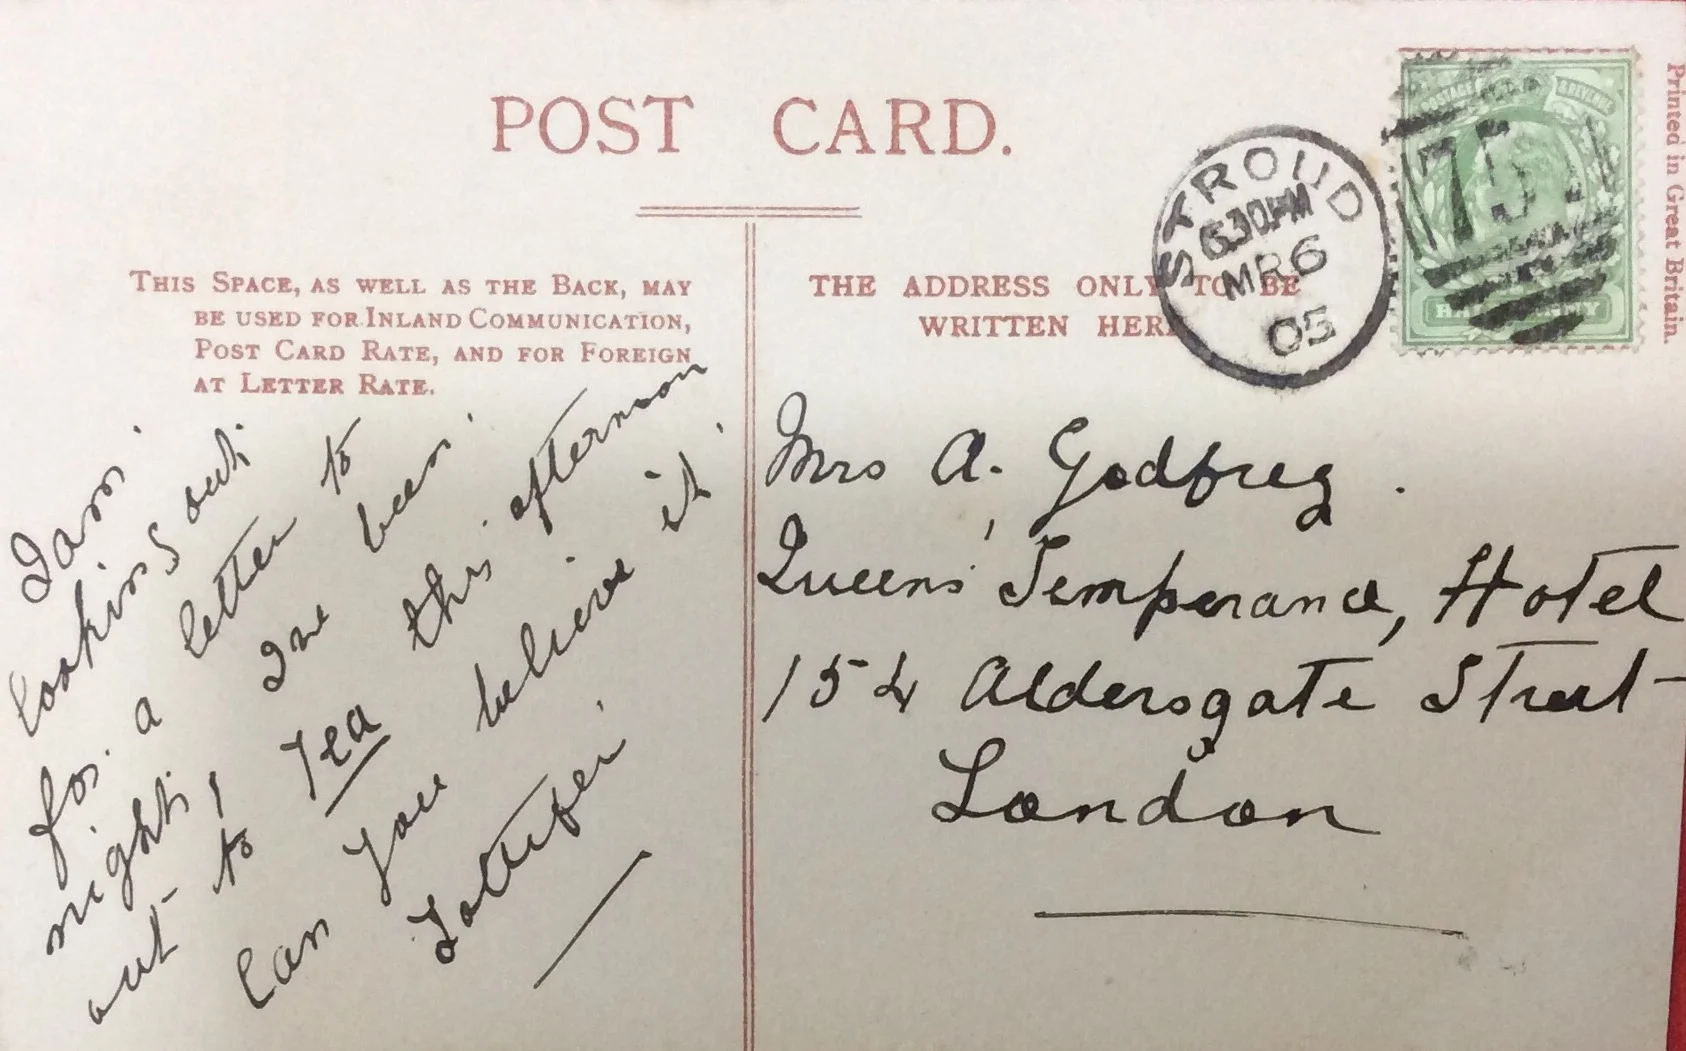 POST CARD.
THIS SPACE, AS WELL AS THE BACK, MAY
BE USED FOR INLAND COMMUNICATION,
POST CARD RATE, AND FOR FOREIGN
AT LETTER RATE.
THE ADDRESS ONLY TO BE
WRITTEN HERE
STROUD
6.30PM
MR 6
05
POSTAGE & REVENUE
HALFPENNY
Printed in Great Britain.
I am
looking out
for a letter to
night, I've been
out to Tea this afternoon
Can you believe it
Mrs A. Godfrey.
Queens' Temperance, Hotel
154 Aldersgate Street
London